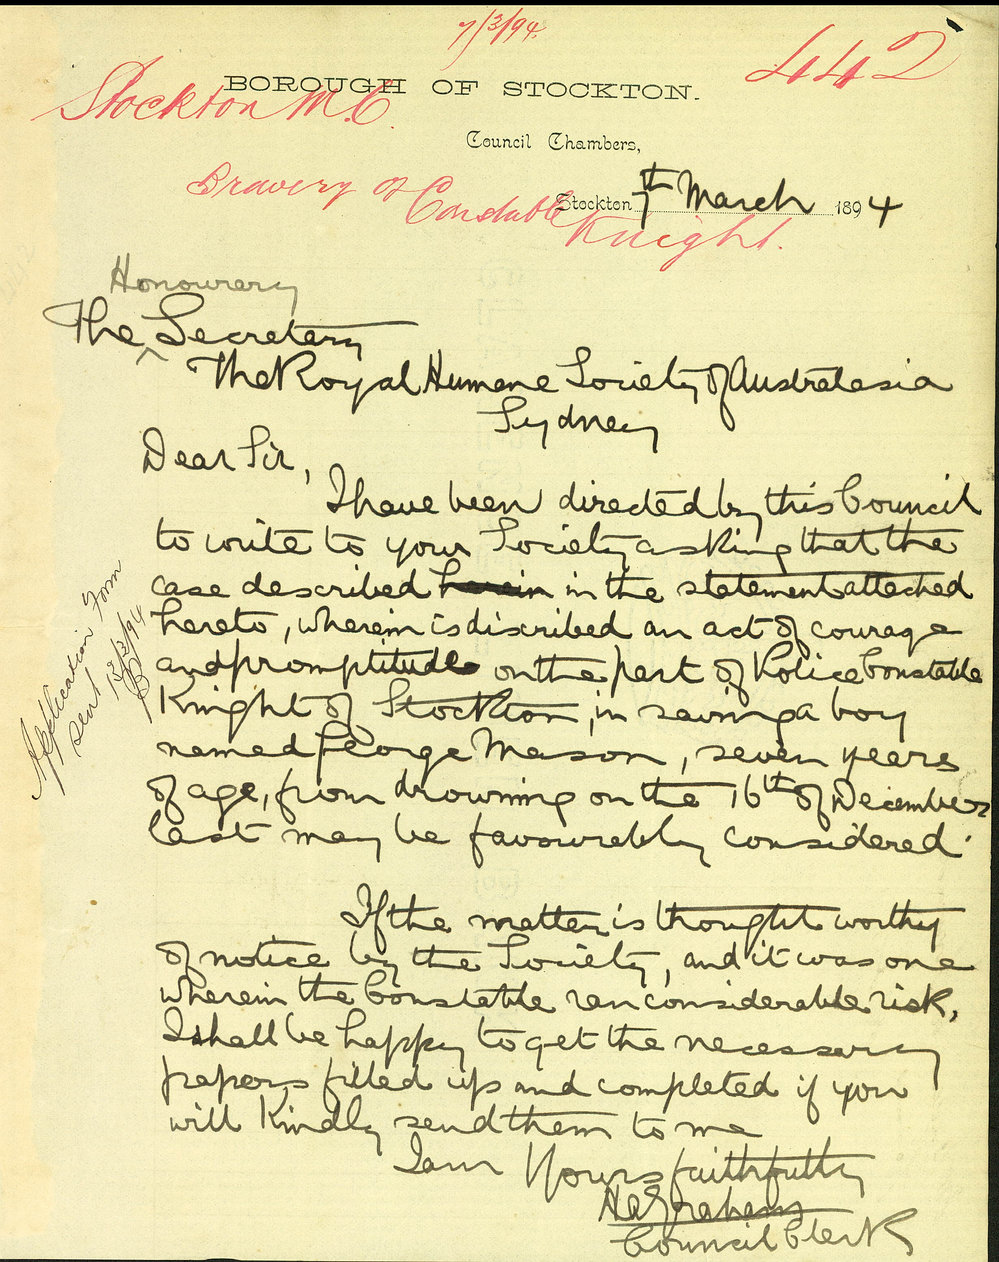 7/3/94.
442
BOROUGH OF STOCKTON.
Stockton M.C.
Council Chambers,
Bravery of Constable Knight.
Stockton 7th March 1894
Honourary
The Secretary
The Royal Humane Society of Australasia
Sydney
Dear Sir,
I have been directed by this Council
to write to your Society asking that the
case described herein in the statement attached
hereto, wherein is discribed an act of courage
and promptitude on the part of Police Constable
Knight of Stockton, in saving a boy
named George Mason, seven years
of age, from drowning on the 16th of December
last may be favourably considered.
Application Form
sent
13/3/94
If the matter is thought worthy
of notice by the Society, and it was one
wherein the Constable ran considerable risk,
I shall be happy to get the necessary
papers filled up and completed if you
will kindly send them to me
I am Yours faithfully
Graham
Council Clerk